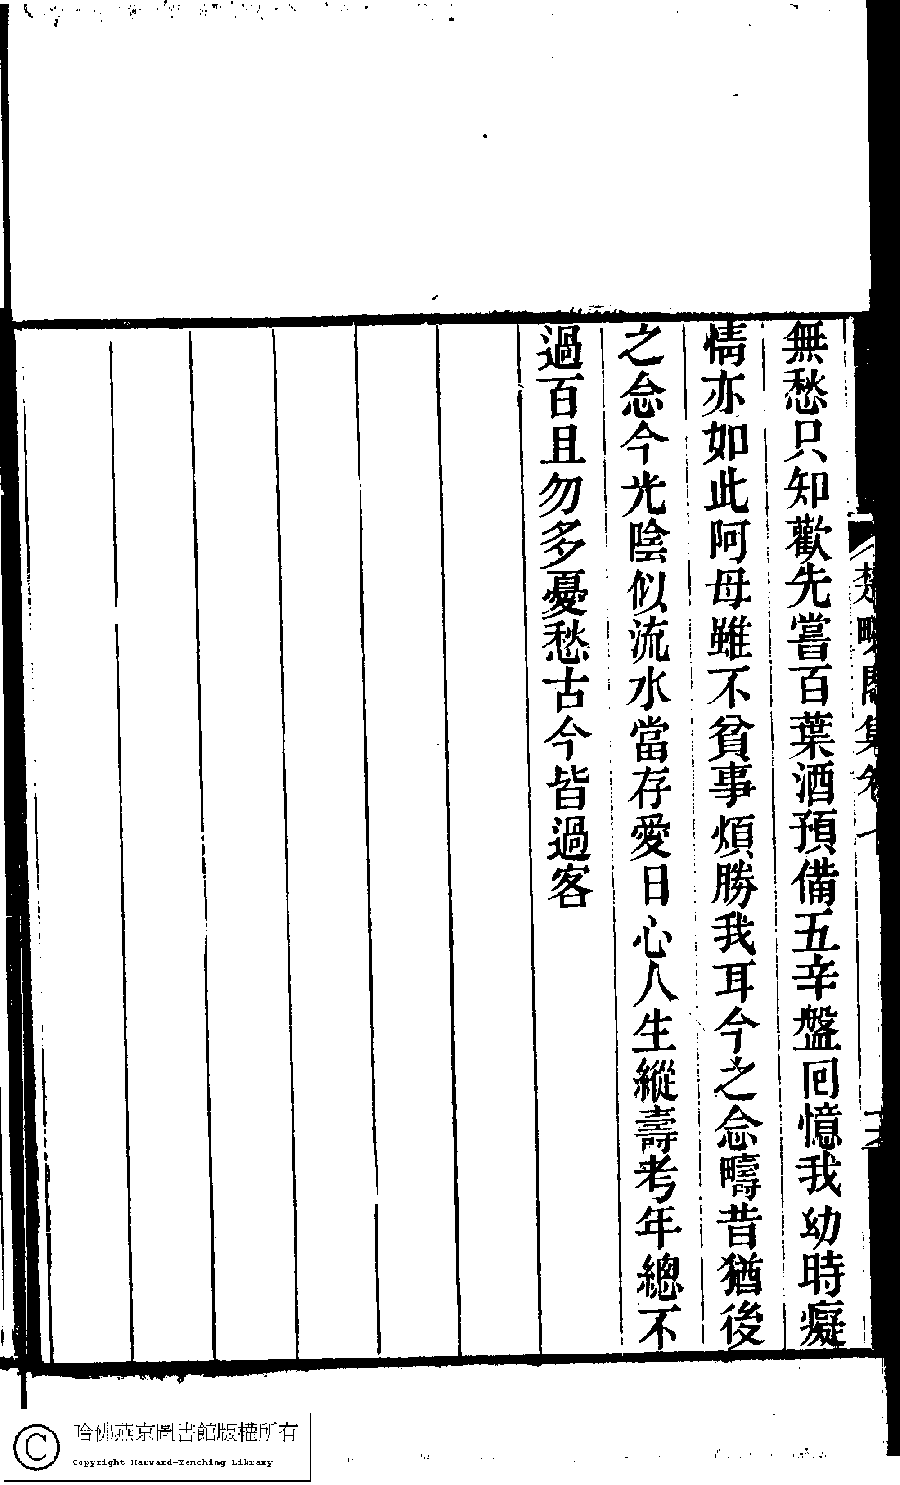 無愁只知歡先嘗百葉酒預備五辛盤回憶我幼時癡
情亦如此阿母雖不貧事煩勝我耳今之念疇昔猶後
之念今光陰似流水當存愛日心人生縱壽考年總不
過百且勿多憂愁古今皆過客
集卷
哈佛燕京圖書館版權所有
Copyright Harvard-Yenching Library